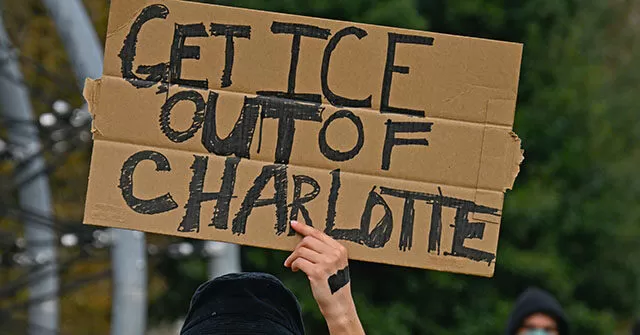 GET ICE
OUT OF
CHARLOTTE